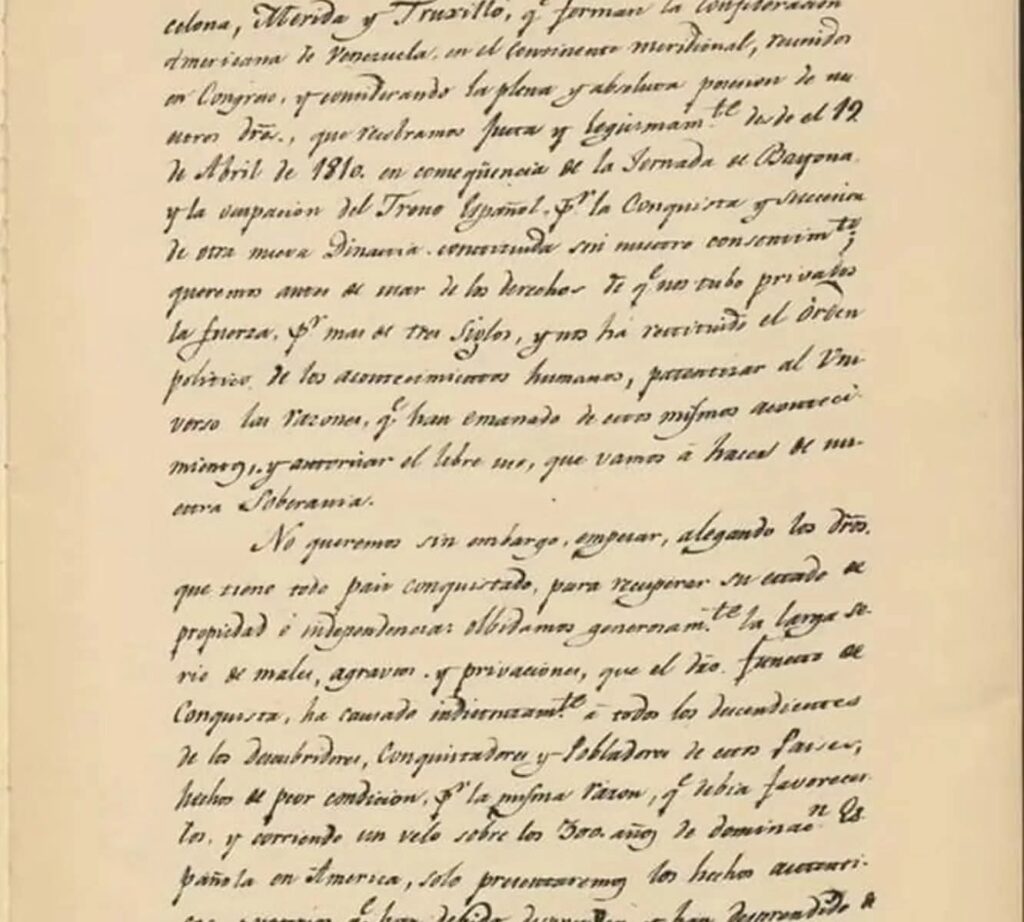 celona, Merida y Truxillo, q.e forman la Confederacion
Americana de Venezuela, en el Continente meridional, reunidos
en Congreso, y considerando la plena y absoluta posesion de nu
estros drõs., que recobramos justa y legitimam.te desde el 19
de Abril de 1810. en conseqüencia de la Jornada de Bayona,
y la ocupacion del Trono Español, p.r la Conquista y succesion
de otra nueva Dinastia constituida sin nuestro consentim.to;
queremos antes de usar de los derechos de q.e nos tubo privados
la fuerza, p.r mas de tres siglos, y nos há restituido el órden
politico de los acontecimientos humanos, patentizar al Uni-
verso las razones, q.e han emanado de estos mismos aconteci-
mientos, y autorizar el libre uso, que vamos á hacer de nu-
estra Soberania.
No queremos sin embargo, empezar, alegando los drõs.
que tiene todo pais conquistado, para recuperar su estado de
propiedad é independencia: olbidamos generosam.te la larga se-
rie de males, agravios, y privaciones, que el drõ. funesto de
Conquista, ha causado indistintam.te á todos los descendientes
de los descubridores, Conquistadores y Pobladores de estos Paises,
hechos de peor condicion, p.r la misma razon, q.e debia favorecer-
los, y corriendo un velo sobre los 300. años de dominac.n Es
pañola en America, solo presentaremos los hechos autenti-
q.e han debido desprender y han desprendido de